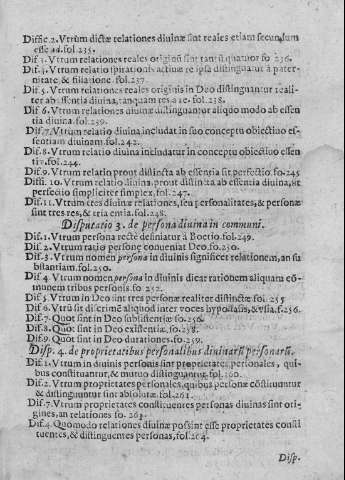 Diffic. 2. Vtrùm dictæ relationes diuinæ sint reales etiam secundum
esse ad. fol. 235.
Dif. 3. Vtrum relationes reales originũ sint tantũ quatuor fo. 236.
Dif. 4. Vtrum relatio spirationis actiuæ re ipsa distinguatur à pater-
nitate, & filiatione. fol. 237.
Dif. 5. Vtrum relationes reales originis in Deo distinguantur reali-
ter ab essentia diuina, tanquam res a re. fol. 238.
Dif. 6. Vtrum relationes diuinæ distinguantur aliquo modo ab essen
tia diuina. fol. 239.
Dif. 7. Vtrum relatio diuina includat in suo conceptu obiectiuo es-
sentiam diuinam. fol. 242.
Dif. 8. Vtrum relatio diuina includatur in conceptu obiectiuo essen-
tiæ. fol. 244.
Dif. 9. Vtrum relatio prout distincta ab essentia sit perfectio. fo. 245
Diffi. 10. Vtrum relatio diuina, prout distincta ab essentia diuina, sit
perfectio simpliciter simplex. fol. 247.
Dif. 11. Vtrum tres diuinæ relationes, seu personalitates, & personæ
sint tres res, & tria entia. fol. 248.
Disputatio 3. de persona diuina in communi.
Dif. 1. Vtrum persona rectè definiatur à Boetio. fol. 249.
Dif. 2. Vtrum ratio personæ conueniat Deo. fo. 250.
Dif. 3. Vtrum nomen persona in diuinis significet relationem, an su
bstantiam. fol. 250.
Dif. 4. Vtrum nomen persona in diuinis dicat rationem aliquam cõ-
munem tribus personis. fo. 252.
Dif. 5. Vtrum in Deo sint tres personæ realiter distinctæ. fol. 255
Dif. 6. Vtrũ sit discrimē aliquod inter voces hypostasis, & vsia. f. 256.
Dif. 7. Quot sint in Deo subsistentiæ fo. 256.
Dif. 8. Quot sint in Deo existentiæ. fo. 258.
Dif. 9. Quot sint in Deo durationes. fo. 259.
Disp. 4. de proprietatibus personalibus diuinarũ personarũ.
Dif. 1. Vtrum in diuinis personis sint proprietates personales, qui-
bus constituantur, & mutuo distinguantur. fol. 260.
Dif. 2. Vtrum proprietates personales, quibus personæ cõstituuntur
& distinguuntur sint absolutæ. fol. 261.
Dif. 3. Vtrum proprietates constituentes personas diuinas sint ori-
gines, an relationes fo. 263.
Dif. 4. Quomodo relationes diuinæ possint esse proprietates consti
tuentes, & distinguentes personas, fol. 264.
Disp.